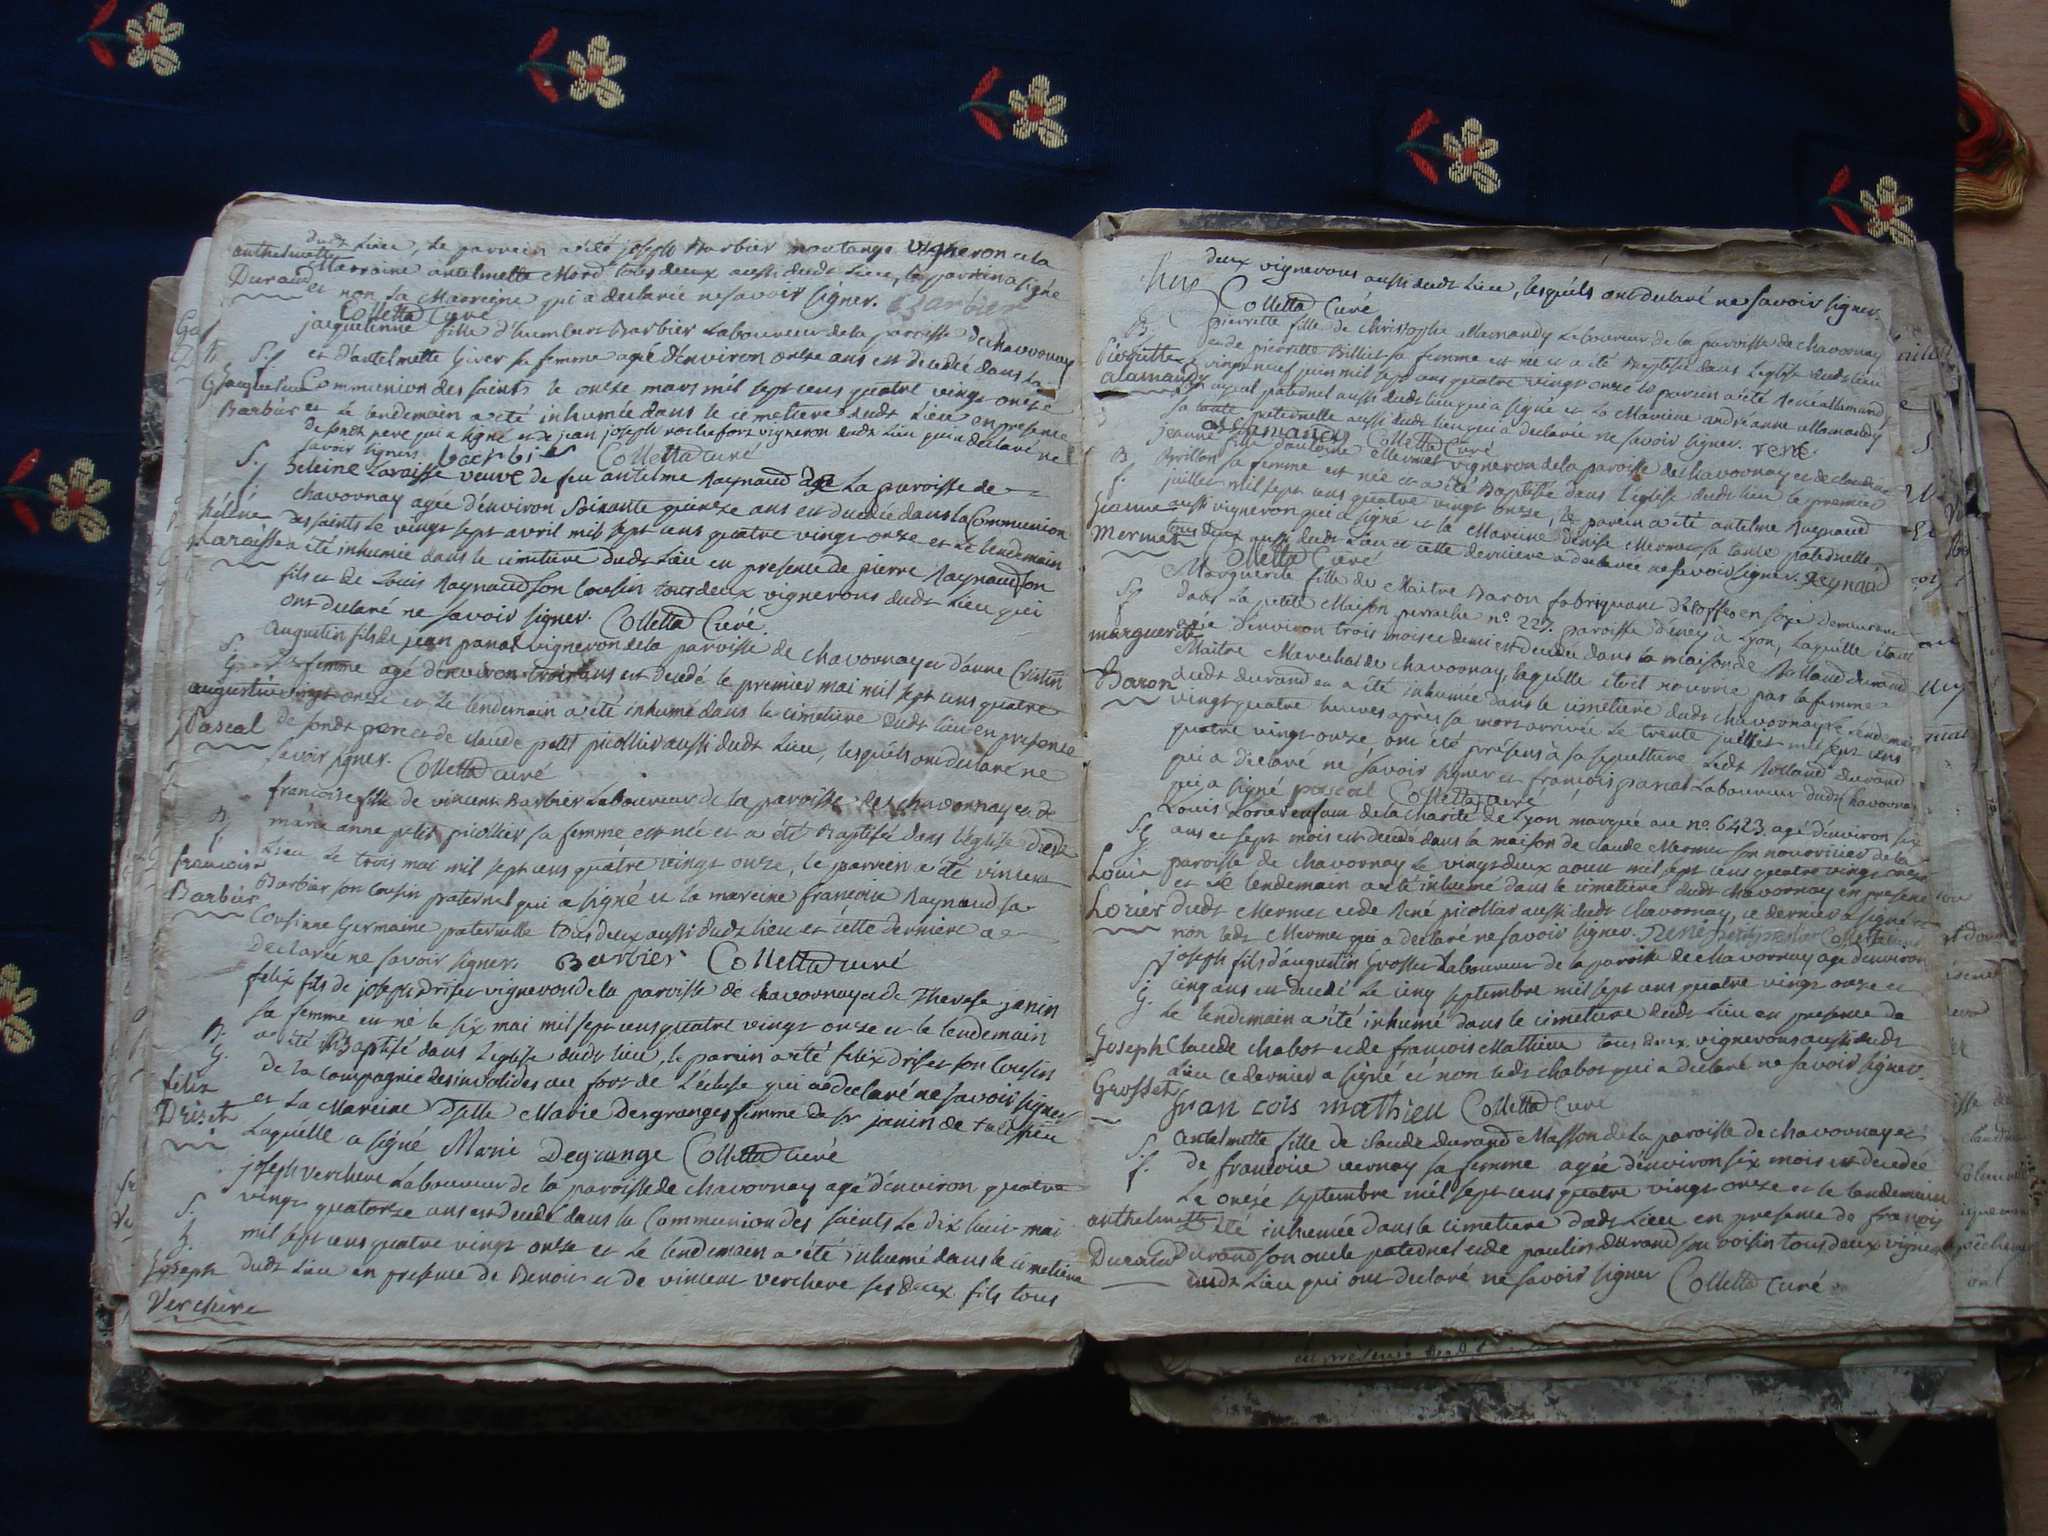 dudt Lieu, Le parrein a été joseph Barbier montange vigneron et la
anthelmette Marraine antelmette Mord tous deux aussi dudt Lieu, le parrein a signé
Durand et non La Marreine qui a declarée ne savoir signer. Barbier
Colletta Curé
jacquelinne fille d'humbert Barbier Laboureur de la paroisse de chavornay
S. et d'antelmette Giver sa femme agée d'environ onze ans est decedée dans La
Communion des saints le onze mars mil sept cens quatre vingt onze
Barbier et le lendemain a été inhumée dans le cimetiere dudt Lieu en presence
de sondt pere qui a signé et de jean joseph rochefort vigneron dudt Lieu qui a declaré ne
savoir signer. barbier Colletta curé
S. heleine Laraisse veuve de feu antelme Raynaud de La paroisse de
f. chavornay agée d'environ Soixante quinze ans est decedée dans la Communion
héléne des saints le vingt sept avril mil sept cens quatre vingt onze et Le lendemain
Laraisse a été inhumée dans le cimetiere dudt Lieu en presence de pierre Raynaud son
fils et de Louis Raynaud son Cousin tous deux vignerons dudt Lieu qui
ont declaré ne savoir signer. Colletta Curé.
S. augustin fils de jean panat vigneron de la paroisse de chavornay et d'anne Cristin
G. sa femme agé d'environ trois ans est decedé le premier mai mil sept cens quatre
augustin vingt onze et Le lendemain a été inhumé dans le cimetiere dudt lieu en presence
Pascal de sondt pere et de claude petit picollier aussi dudt Lieu, lesquels ont declaré ne
savoir signer. Colletta curé
françoise fille de vincent Barbier Laboureur de la paroisse de chavornay et de
B. marie anne petit picollier sa femme est née et a été Baptisée dans l'eglise dudt
f. Lieu Le trois mai mil sept cens quatre vingt onze, le parrein a été vincent
françoise Barbier son Cousin paternel qui a signé et la mareine françoise Raynaud sa
Barbier Cousine Germaine paternelle tous deux aussi dudt lieu et cette derniere a
declarée ne savoir signer. Barbier Colletta curé
felix fils de joseph Driset vigneron de la paroisse de chavornay et de Therese janin
B. sa femme est né le six mai mil sept cens quatre vingt onze et le lendemain
G. a été Baptisé dans l'eglise dudt lieu, le parein a été felix driset son Cousin
félix de la Compagnie des invalides au fort de l'écluse qui a declaré ne savoir signer
Driset et La Mareine Dselle Marie Desgranges femme de sr janin de talissieu
Laquelle a signé Marie Degrange Colletta curé
joseph verchere Laboureur de la paroisse de chavornay agé d'environ quatre
S. vingt quatorze ans est decedé dans la Communion des saints Le dix huit mai
G. mil sept cens quatre vingt onze et Le lendemain a été inhumé dans le cimetiere
Joseph dudt Lieu en presence de Benoit et de vincent verchere ses deux fils tous
Verchere
deux vignerons aussi dudt Lieu, lesquels ont declaré ne savoir signer.
Colletta Curé
B. pierrette fille de Christophe allamandy Laboureur de la paroisse de chavornay
Pierrette et de pierrette Billiet sa femme est née et a été Baptisée dans L'eglise dudt Lieu
alamandy le vingt neuf juin mil sept cens quatre vingt onze le parein a été René allamandy
paternel aussi dudt lieu qui a signé et La Mareine andréanne allamandy
sa tante paternelle aussi dudt lieu qui a declarée ne savoir signer. rené
alemandy Colletta Curé
B. jeanne fille d'antoine Mermet vigneron de la paroisse de chavornay et de claudine
f. Brillon sa femme est née et a été Baptisée dans l'eglise dudt lieu le premier
jeanne juillet mil sept cens quatre vingt onze, le parein a été antelme Raynaud
Mermet aussi vigneron qui a signé et la Mareine denise Mermet sa tante paternelle,
tous deux aussi dudt Lieu et cette derniere a declarée ne savoir signer. Reynaud
Colletta Curé
S. Marguerite fille de Maitre Baron fabriquant d'étoffes en soye demeurant
f. dans la petite Maison perrache no. 227. paroisse d'éney a Lyon, Laquelle étant
marguerite agée d'environ trois mois et demi est decedée dans la maison de Rolland durand
Maitre Marechal de chavornay, laquelle étoit nourrie par la femme
Baron dudt durand et a été inhumée dans le cimetiere dudt chavornay le lendemain
vingt quatre heures après sa mort arrivée Le trente juillet mil sept cens
quatre vingt onze ont été présens à sa sepulture Ledt Rolland durand
qui a declaré ne savoir signer et francois pascal Laboureur dudt chavornay
qui a signé pascal Colletta curé
S. Louis Lorier enfant de la charité de Lyon marqué au no. 6423. agé d'environ six
G. ans et sept mois est decedé dans la maison de claude Mermet son nourricier de la
Louis paroisse de chavornay Le vingt deux aout mil sept cens quatre vingt onze
et Le lendemain a été inhumé dans le cimetiere dudt chavornay en presence
Lorier dudt Mermet et de René picollier aussi dudt chavornay, ce dernier a signé et
non ledt Mermet qui a declaré ne savoir signer. René petit picollier Colletta curé
S. joseph fils d'augustin Grosset Laboureur de la paroisse de chavornay agé d'environ
G. cinq ans est decedé Le cinq septembre mil sept cens quatre vingt onze et
Le lendemain a été inhumé dans le cimetiere dudt Lieu en presence de
Joseph Claude chabot et de francois Mathieu tous deux vignerons aussi dudt
Grosset Lieu ce dernier a signé et non ledt chabot qui a declaré ne savoir signer.
fran cois mathieu Colletta Curé
S. antelmette fille de claude durand Masson de La paroisse de chavornay et
f. de francoise vernay sa femme agée d'environ six mois est decedée
Le onze septembre mil sept cens quatre vingt onze et le lendemain
anthelmette a été inhumée dans le cimetiere dudt Lieu en presence de francois
Durand Durand son oncle paternel et de paulin durand son voisin tous deux vignerons
dudt Lieu qui ont declaré ne savoir signer Colletta Curé